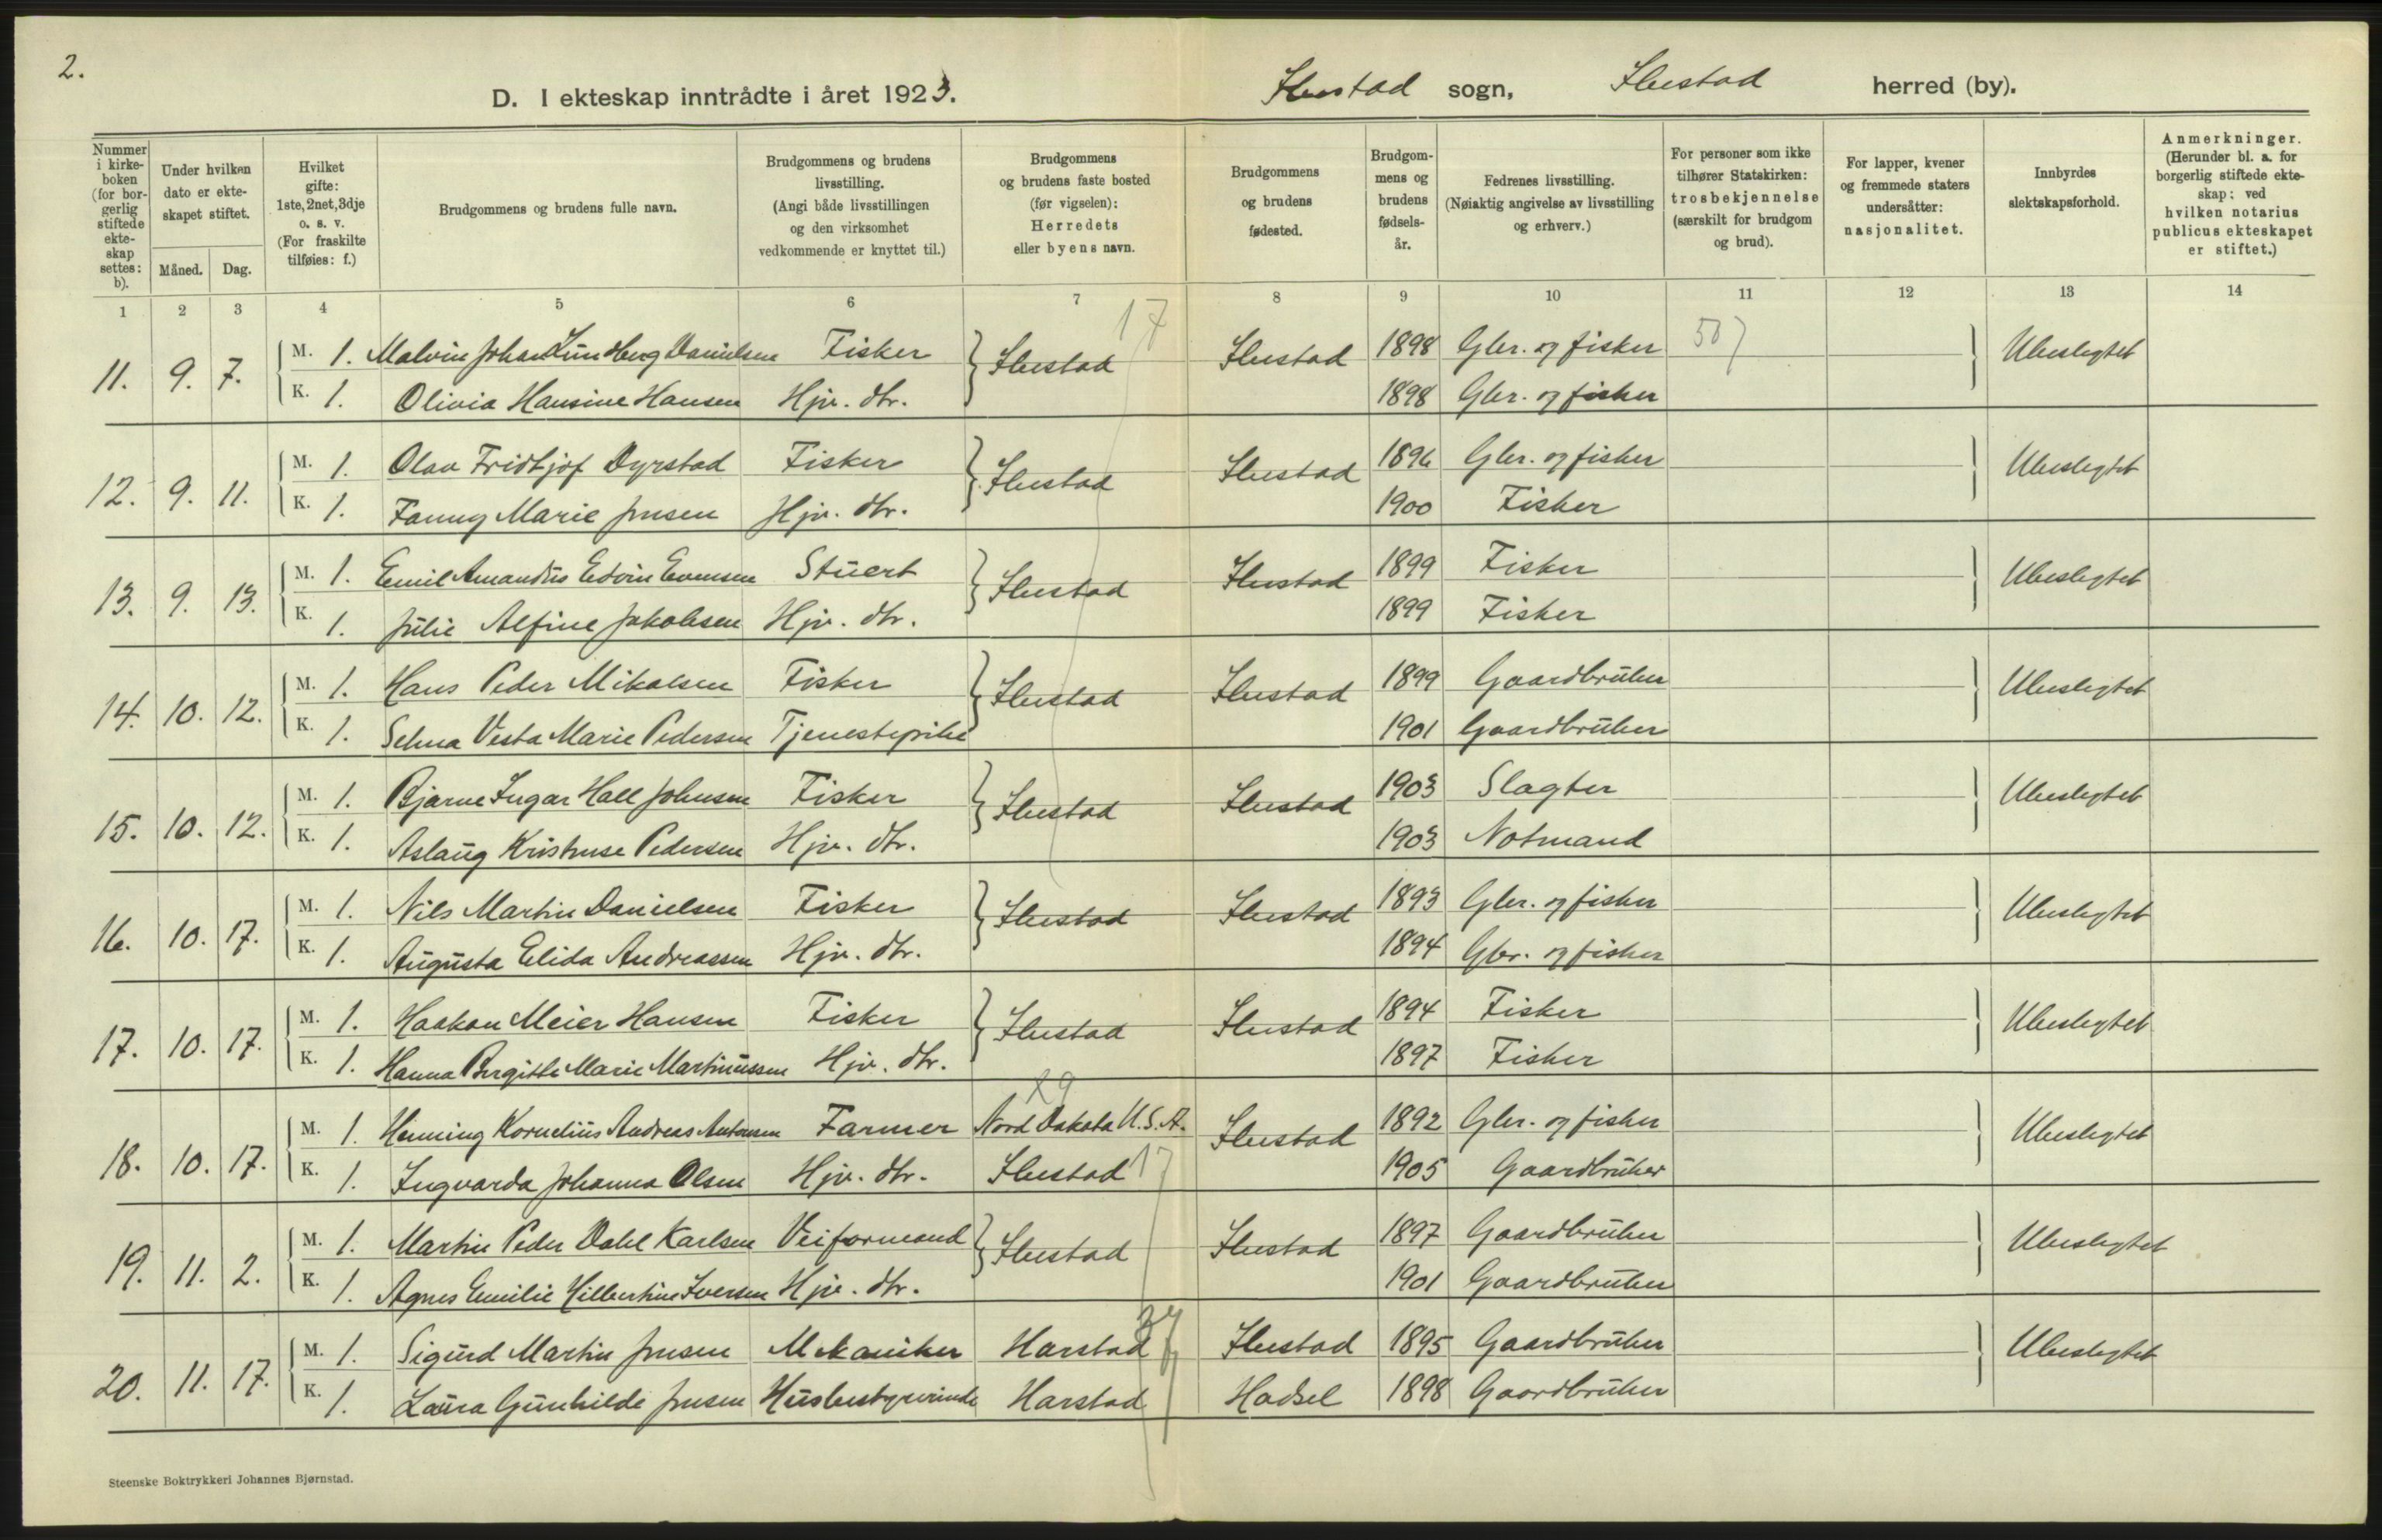 2.
D. I ekteskap inntrådte i året 1923. Ibestad sogn, Ibestad herred (by).
Nummer i kirkeboken (for borgerlig stiftede ekteskap settes: b).
Under hvilken dato er ekteskapet stiftet.
Måned. Dag.
Hvilket gifte: 1ste, 2net, 3dje o. s. v. (For fraskilte tilføies: f.)
Brudgommens og brudens fulle navn.
Brudgommens og brudens livsstilling. (Angi både livsstillingen og den virksomhet vedkommende er knyttet til.)
Brudgommens og brudens faste bosted (før vigselen): Herredets eller byens navn.
Brudgommens og brudens fødested.
Brudgommens og brudens fødselsår.
Fedrenes livsstilling. (Nøiaktig angivelse av livsstilling og erhverv.)
For personer som ikke tilhører Statskirken: trosbekjennelse (særskilt for brudgom og brud).
For lapper, kvener og fremmede staters undersåtter: nasjonalitet.
Innbyrdes slektskapsforhold.
Anmerkninger. (Herunder bl. a. for borgerlig stiftede ekteskap: ved hvilken notarius publicus ekteskapet er stiftet.)
1 2 3 4 5 6 7 8 9 10 11 12 13 14
17
11. 9. 7. M. 1. Malvin Johan Lundberg Danielsen Fisker Ibestad Ibestad 1898 Gbr. og fisker 50) Ubeslegtet
K. 1. Olivia Hansine Hansen Hjv. dtr. 1898 Gbr. og fisker
12. 9. 11. M. 1. Olav Fridtjof Dyrstad Fisker Ibestad Ibestad 1896 Gbr. og fisker Ubeslegtet
K. 1. Fanny Marie Jensen Hjv. dtr. 1900 Fisker
13. 9. 13. M. 1. Emil Amandus Edvin Evensen Stuert Ibestad Ibestad 1899 Fisker Ubeslegtet
K. 1. Julie Alfine Jakobsen Hjv. dtr. 1899 Fisker
14. 10. 12. M. 1. Hans Peder Mikalsen Fisker Ibestad Ibestad 1899 Gaardbruker Ubeslegtet
K. 1. Selma Vesta Marie Pedersen Tjenestepike 1901 Gaardbruker
15. 10. 12. M. 1. Bjarne Ingar Hall Johnsen Fisker Ibestad Ibestad 1903 Slagter Ubeslegtet
K. 1. Aslaug Kristense Pedersen Hjv. dtr. 1903 Notmand
16. 10. 17. M. 1. Nils Martin Danielsen Fisker Ibestad Ibestad 1893 Gbr. og fisker Ubeslegtet
K. 1. Augusta Elida Andreassen Hjv. dtr. 1894 Gbr. og fisker
17. 10. 17. M. 1. Haakon Meier Hansen Fisker Ibestad Ibestad 1894 Fisker Ubeslegtet
K. 1. Hanna Birgitte Marie Martinussen Hjv. dtr. 1897 Fisker
29
18. 10. 17. M. 1. Henning Kornelius Andreas Antonsen Farmer Nord Dakota U.S.A. Ibestad 1892 Gbr. og fisker Ubeslegtet
K. 1. Ingvarda Johanna Olsen Hjv. dtr. Ibestad 17 1905 Gaardbruker
19. 11. 2. M. 1. Martin Peder Dahl Karlsen Veiformand Ibestad Ibestad 1897 Gaardbruker Ubeslegtet
K. 1. Agnes Emilie Hilbertine Iversen Hjv. dtr. 1901 Gaardbruker
20. 11. 17. M. 1. Sigurd Martin Jensen Mekaniker Harstad Ibestad 1895 Gaardbruker Ubeslegtet
K. 1. Laura Gunhilde Jensen Husbestyrerinde Harstad Hadsel 1898 Gaardbruker
Steenske Boktrykkeri Johannes Bjørnstad.